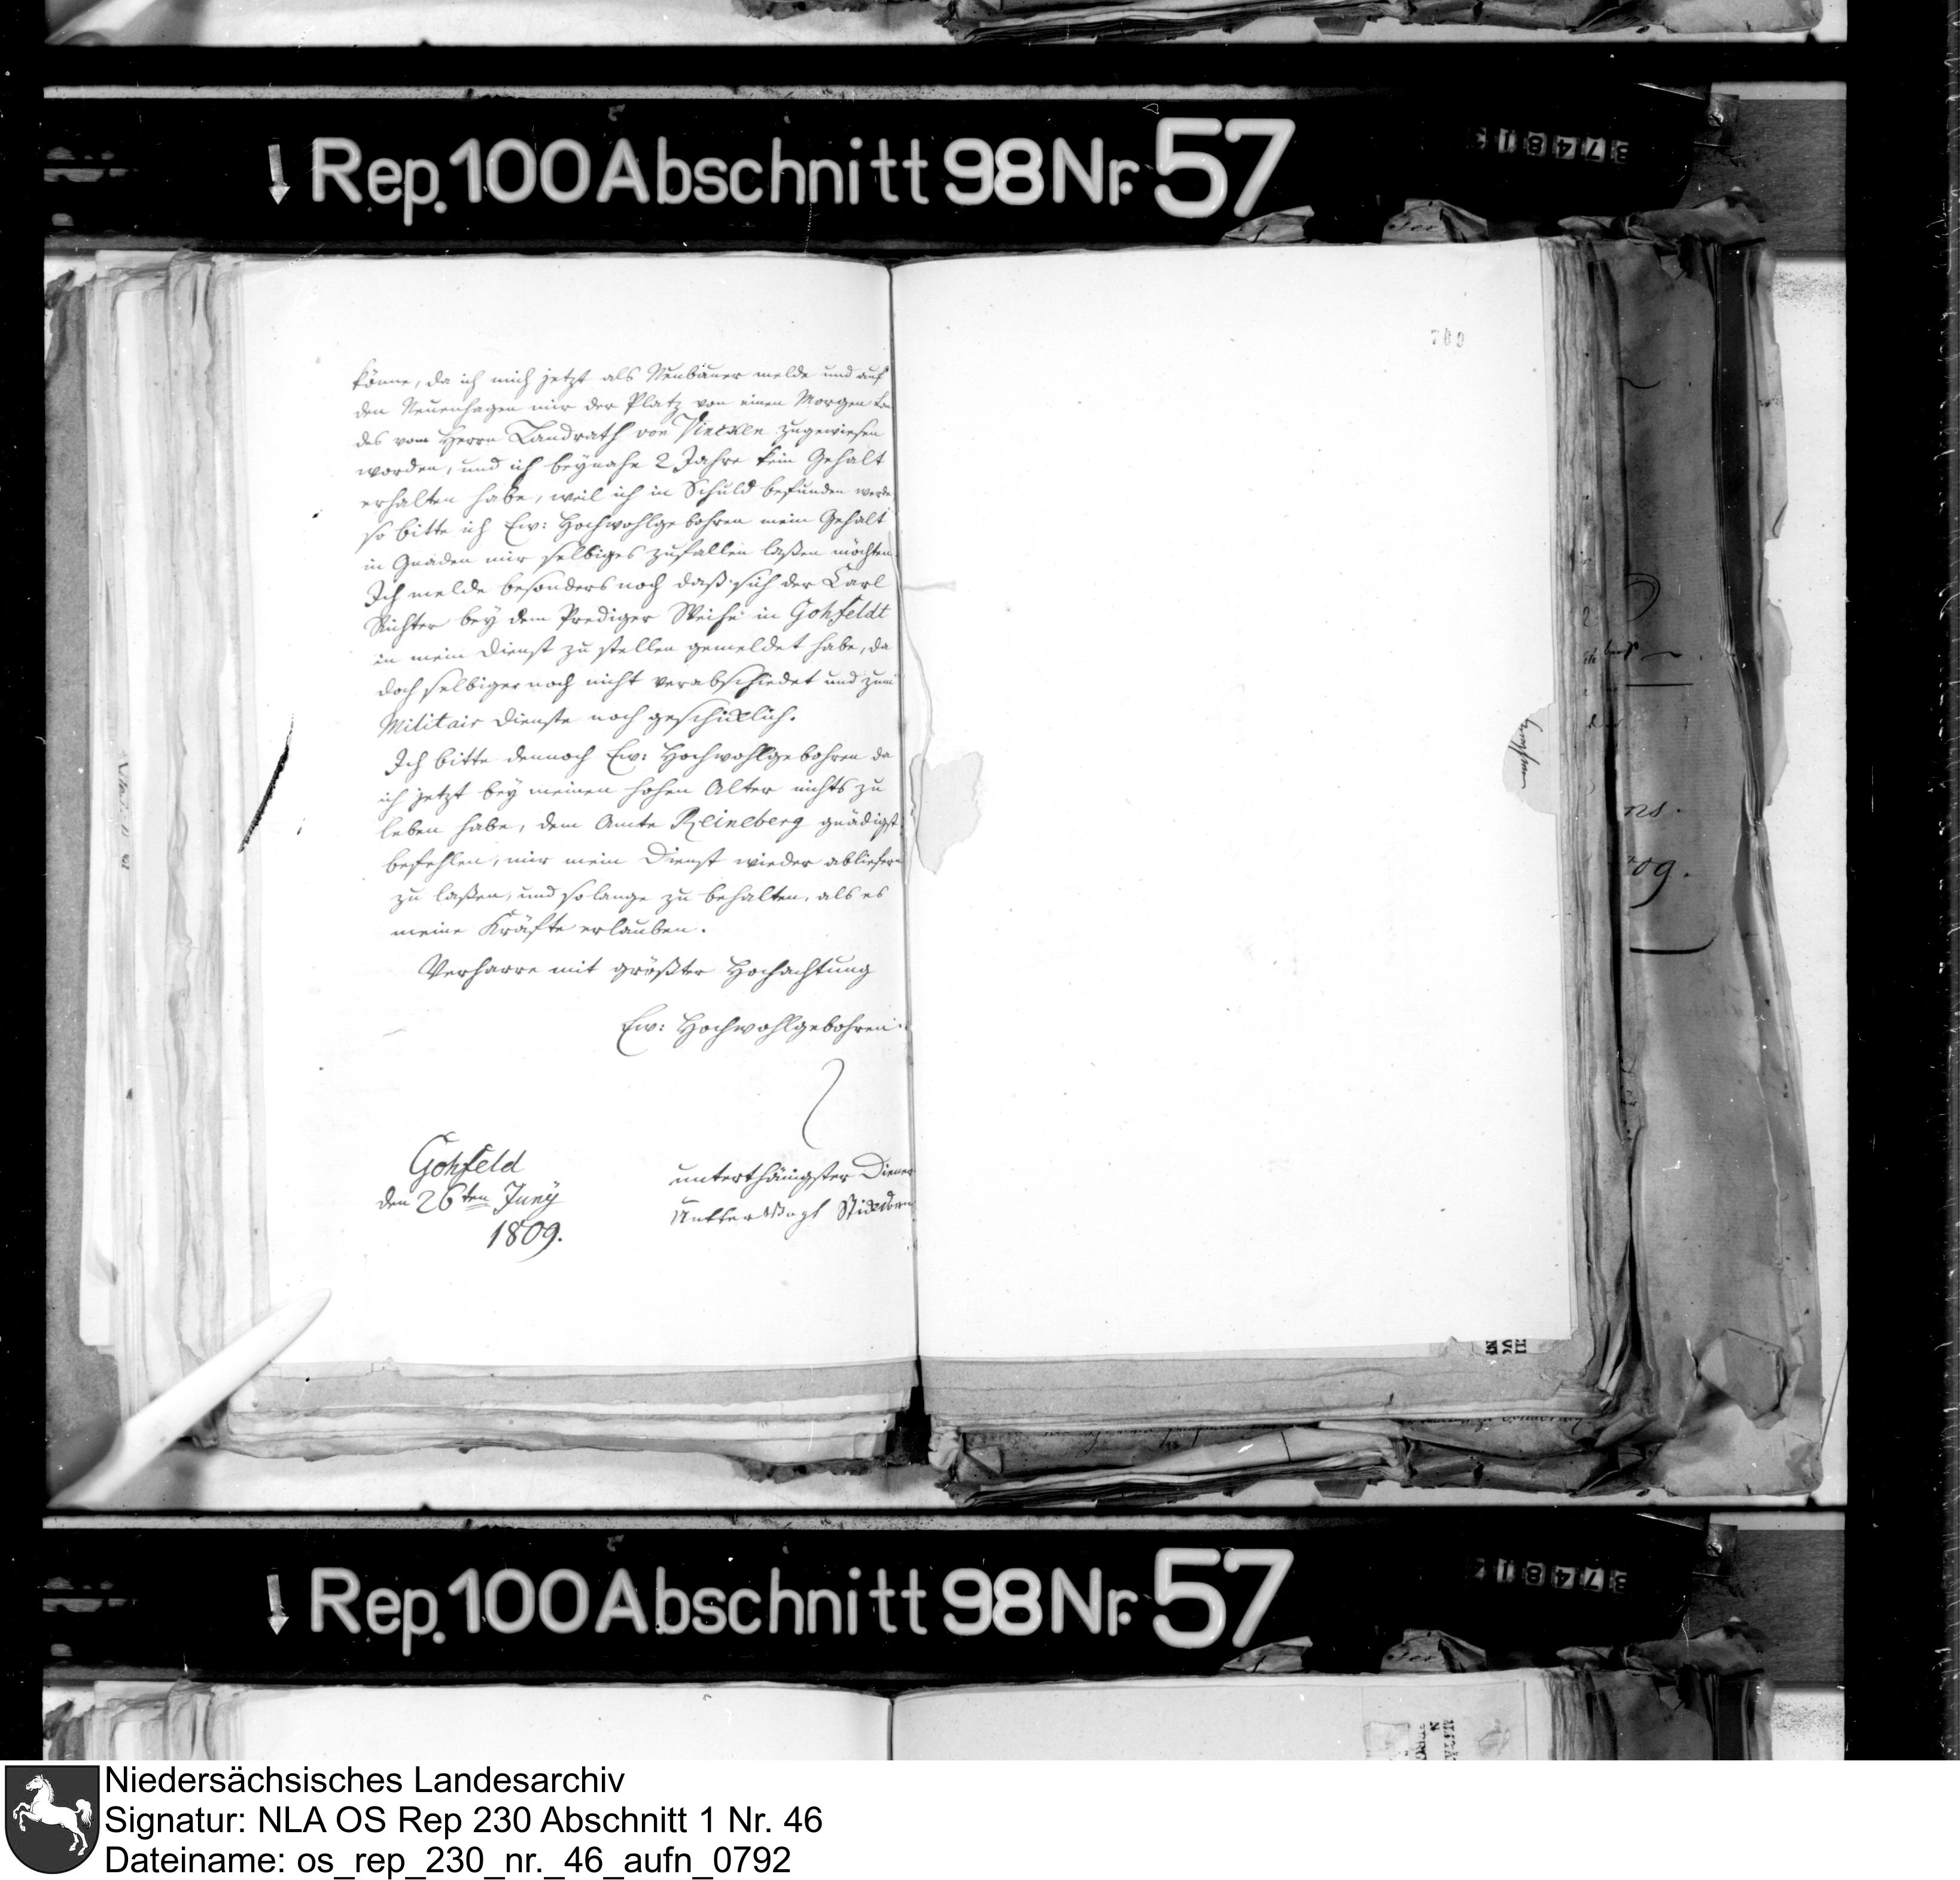 ↓ Rep. 100 Abschnitt 98 Nr. 57
könne, da ich mich jetzt als Neubäuer melde und auf
den Neuenhagen mir der Platz von einen Morgen
des vom Herrn Landrath von Vincken zugewiesen
worden, und ich beynahe 2 Jahre kein Gehalt
erhalten habe, weil ich in Schuld befunden werde
so bitte ich Ew: Hochwohlgebohren mein Gehalt
in Gnaden mir selbiges zufallen laßen möchten.
Ich melde besonders noch daß sich der Carl
Richter bey dem Prediger Weihe in Gohfeldt
in mein Dienst zu stellen gemeldet habe, da
doch selbiger noch nicht verabschiedet und zum
Militair Dienste noch geschicklich.
Ich bitte dennoch Ew: Hochwohlgebohren da
ich jetzt bey meinen hohen Alter nichts zu
leben habe, dem Amte Reineberg gnädigst
befehlen, mir mein Dienst wieder abliefern
zu laßen, und so lange zu behalten, als es
meine Kräfte erlauben.
Verharre mit größter Hochachtung
Ew: Hochwohlgebohren
Gohfeld
den 26ten Juny
1809.
unterthänigster Diener
Unter Vogt
↓ Rep. 100 Abschnitt 98 Nr. 57
Niedersächsisches Landesarchiv
Signatur: NLA OS Rep 230 Abschnitt 1 Nr. 46
Dateiname: os_rep_230_nr._46_aufn_0792